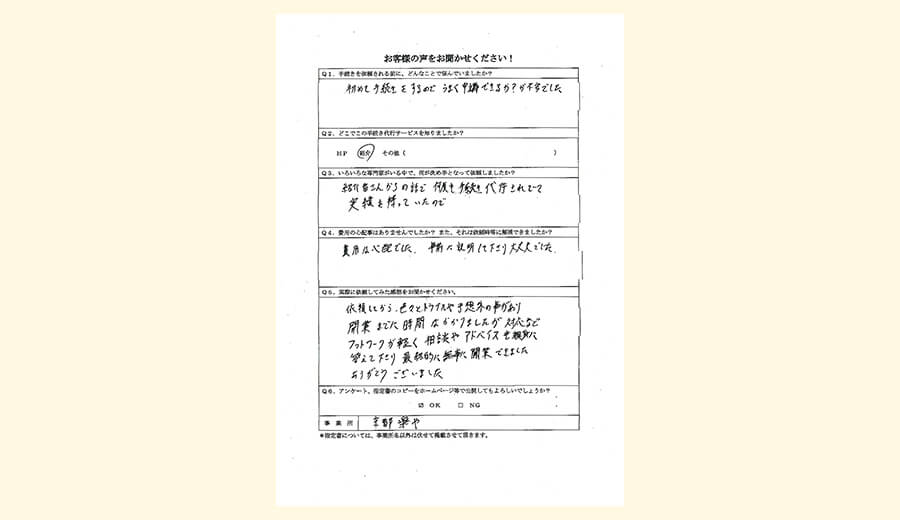 お客様の声をお聞かせください！
Q1．手続きを依頼される前に、どんなことで悩んでいましたか？
初めて手続きをするので うまく申請できるか？が不安でした
Q2．どこでこの手続き代行サービスを知りましたか？
HP 紹介 その他（ ）
Q3．いろいろな専門家がいる中で、何が決め手となって依頼しましたか？
紹介者さんからの話で 何度も手続き代行されていて
実績を持っていたので
Q4．費用の心配事はありませんでしたか？ また、それは依頼時等に解消できましたか？
費用は心配でした、事前に説明して下さり大丈夫でした。
Q5．実際に依頼してみた感想をお聞かせください。
依頼してから、色々とトライスや予想外の事があり
開業までに時間はかかりましたが 対応など
フットワークが軽く 相談やアドバイスも親身に
答えて下さり 最終的に無事に開業できました
ありがとうございました
Q6．アンケート、指定書のコピーをホームページ等で公開してもよろしいでしょうか？
☑ OK □ NG
事業所 京都楽や
＊指定書については、事業所名以外は伏せて掲載させて頂きます。